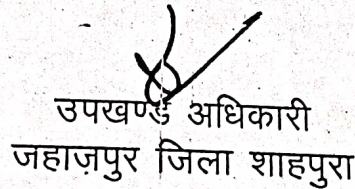 उपखण्ड अधिकारी
जहाज़पुर जिला शाहपुरा